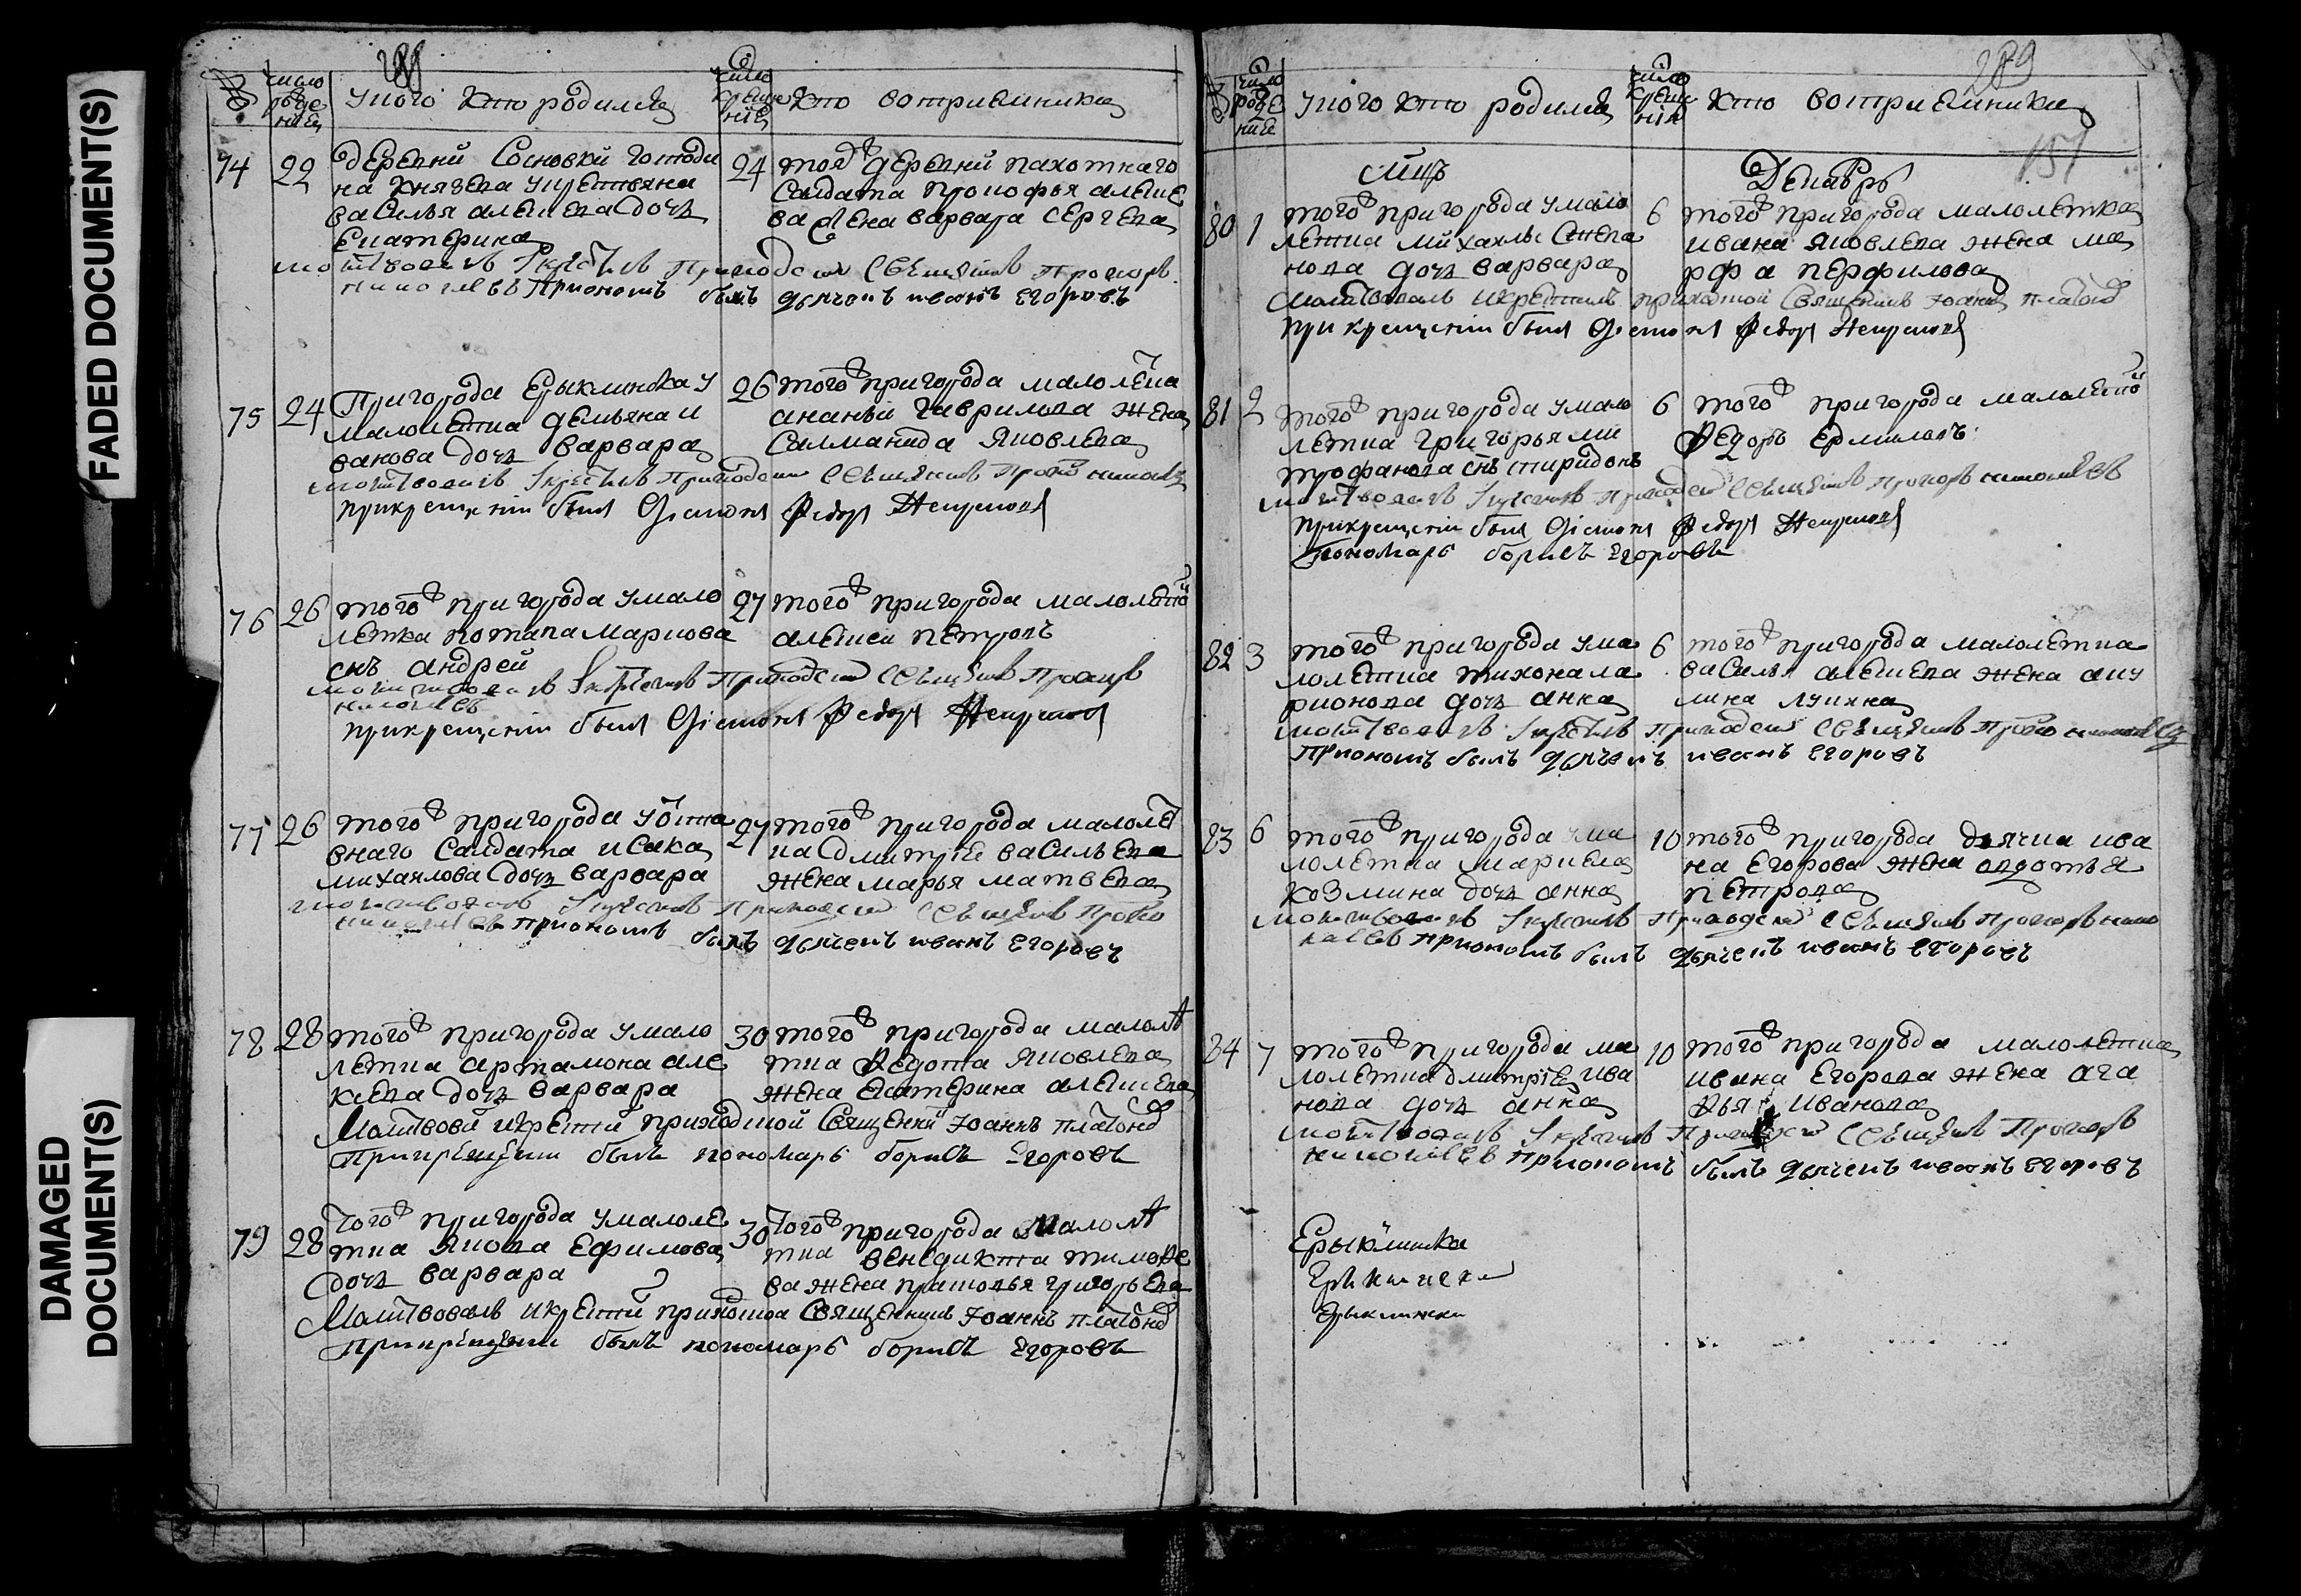 FADED DOCUMENT(S)
DAMAGED DOCUMENT(S)
288
№
число рожде нiе
У кого кто родился
число креще нiе
кто восприемники
74 22
деревни Сосновки господи
на князева у крестьяна
василья алексева дочь
Екатерина
24
тояж деревни пахотнаго
салдата прокофья алексе
ва жена варвара сергева
молитвовалъ и крестилъ приходской священникъ прохоръ
николаевъ при ономъ былъ дьячекъ иванъ егоровъ
75 24
Пригорода Ерыклинска у
малолетка демьяна и
ванова дочь варвара
26
того ж пригорода малолетка
ананьи гаврилова жена
саламанида яковлева
молитвовалъ и крестилъ приходской священникъ прохоръ николаевъ
при крещенiи былъ дiаконъ федоръ
76 26
того ж пригорода у мало
летка потапа маркова
снъ андрей
27
того ж пригорода малолетной
алексей петровъ
молитвовалъ и крестилъ приходской священникъ прохоръ
николаевъ
при крещенiи былъ дiаконъ федоръ
77 26
того ж пригорода у отста
внаго салдата исака
михаилова дочь варвара
27
того ж пригорода малолет
ка дмитрея васильева
жена марья матвева
молитвовалъ и крестилъ приходской священникъ прохоръ
николаевъ при ономъ былъ дьячекъ иванъ егоровъ
78 28
того ж пригорода у мало
летка артамона але
ксева дочь варвара
30
того ж пригорода малолѣ
тка федота яковлева
жена екатерина алексева
Молитвовал и крестил приходской священник Iоаннъ платонов
при крещении былъ пономарь борисъ Егоровъ
79 28
того ж пригорода у малоле
тка якова ефимова
дочь варвара
30
того ж пригорода малолѣ
тка венедикта тимофе
ва жена прасковья григорьева
Молитвовалъ и крестил приходской священникъ Iоаннъ платонов
при крещении былъ пономарь борисъ Егоровъ
289
157
№
число рожде нiе
У кого кто родился
число креще нiя
кто восприемники
мцъ Декабрь
80 1
того ж пригорода у мало
летка михаилы степа
нова дочь варвара
6
того ж пригорода малолетка
ивана яковлева жена ма
рфа перфилова
молитвовалъ и крестилъ приходской священникъ Iоаннъ платонов
при крещенiи былъ дiаконъ федоръ
81 2
того ж пригорода у мало
летка григорья ми
трофанова снъ спиридонъ
6
того ж пригорода малолетной
федоръ ермиловъ
молитвовалъ и крестилъ приходской священникъ прохоръ николаевъ
при крещенiи былъ дiаконъ федоръ
пономарь борисъ Егоровъ
82 3
того ж пригорода у ма
лолетка тихона ла
рионова дочь анна
6
того ж пригорода малолетка
василья алексева жена аку
лина лукина
молитвовалъ и крестилъ приходской священникъ прохоръ николаевъ
при ономъ былъ дьячекъ иванъ егоровъ
83 6
того ж пригорода у ма
лолетка маркела
козмина дочь анна
10
того ж пригорода дьячка ива
на Егорова жена авдотья
петрова
молитвовалъ и крестилъ приходской священникъ прохоръ нико
лаевъ при ономъ былъ дьячекъ иванъ егоровъ
84 7
того ж пригорода ма
лолетка дмитрiя ива
нова дочь анна
10
того ж пригорода малолетка
ивана Егорова жена ага
фья Иванова
молитвовалъ и крестилъ приходской священникъ прохоръ
николаевъ при ономъ былъ дьячекъ иванъ егоровъ
Ерыклинска
Ерыклински
Ерыклински